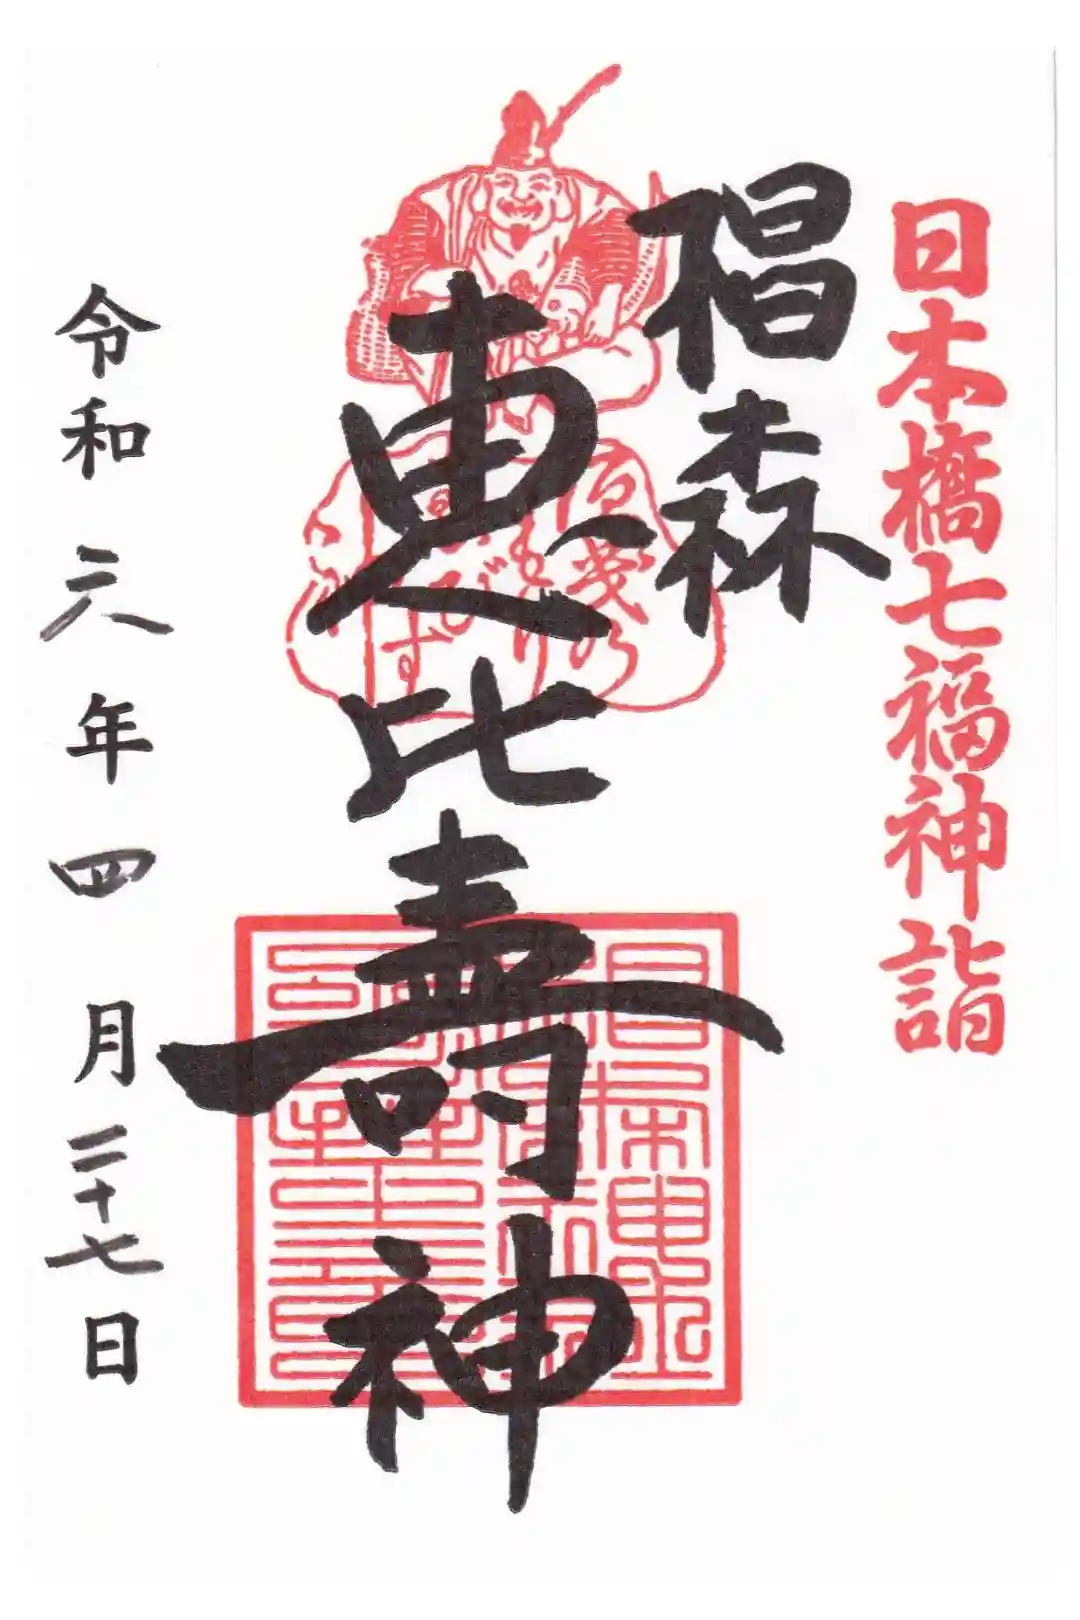 日本橋七福神詣
椙森
恵比壽神
令和六年四月二十七日